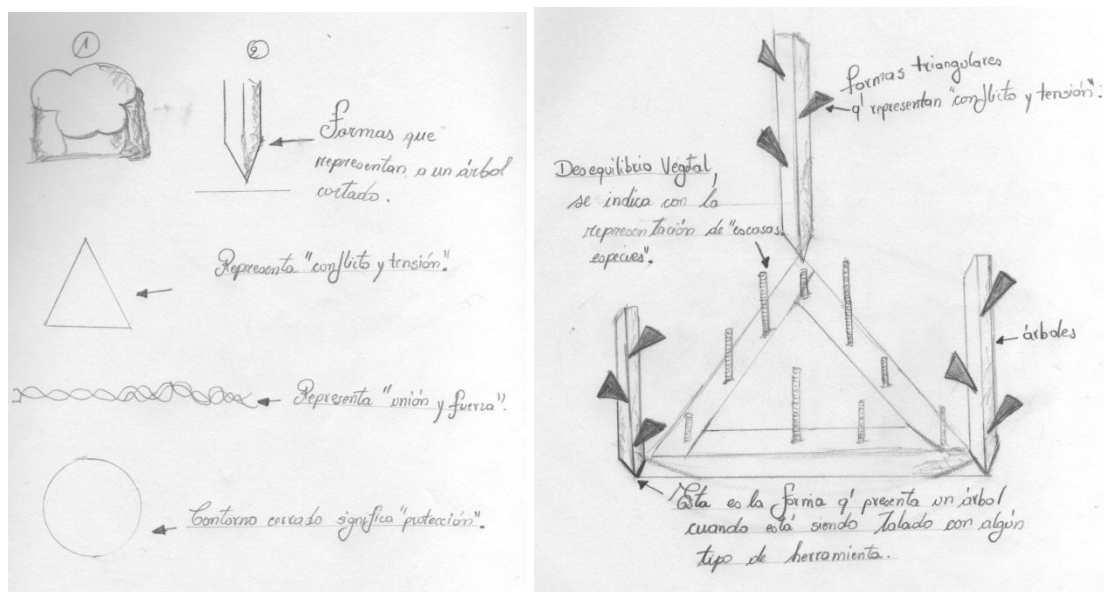 1
2
Formas que
representan a un árbol
cortado.
Representa "conflicto y tensión".
Representa "unión y fuerza".
Contorno cerrado significa "protección".
formas triangulares
q' representan "conflicto y tensión".
Desequilibrio Vegetal,
se indica con la
representación de "escasas
especies".
árboles
Esta es la forma q' presenta un árbol
cuando está siendo talado con algún
tipo de herramienta.